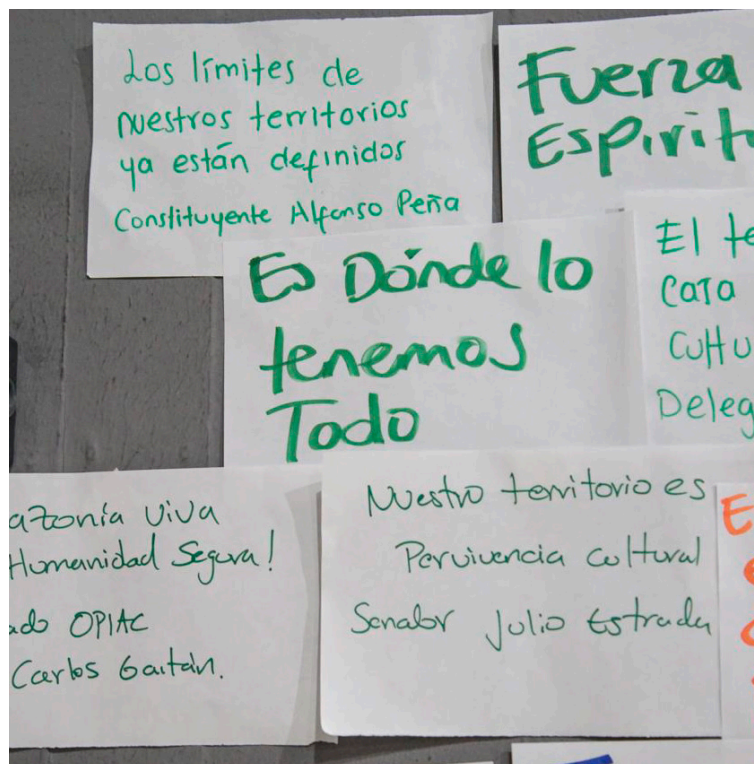 Los límites de
nuestros territorios
ya están definidos
Constituyente Alfonso Peña
Fuerza
Espiritu
Es Dónde lo
tenemos
Todo
El te
Cara
Cultu
Deleg
azonía viva
Humanidad Segura!
ado OPIAC
Carlos Gaitán.
Nuestro territorio es
Pervivencia cultural
Senador Julio Estrada
E